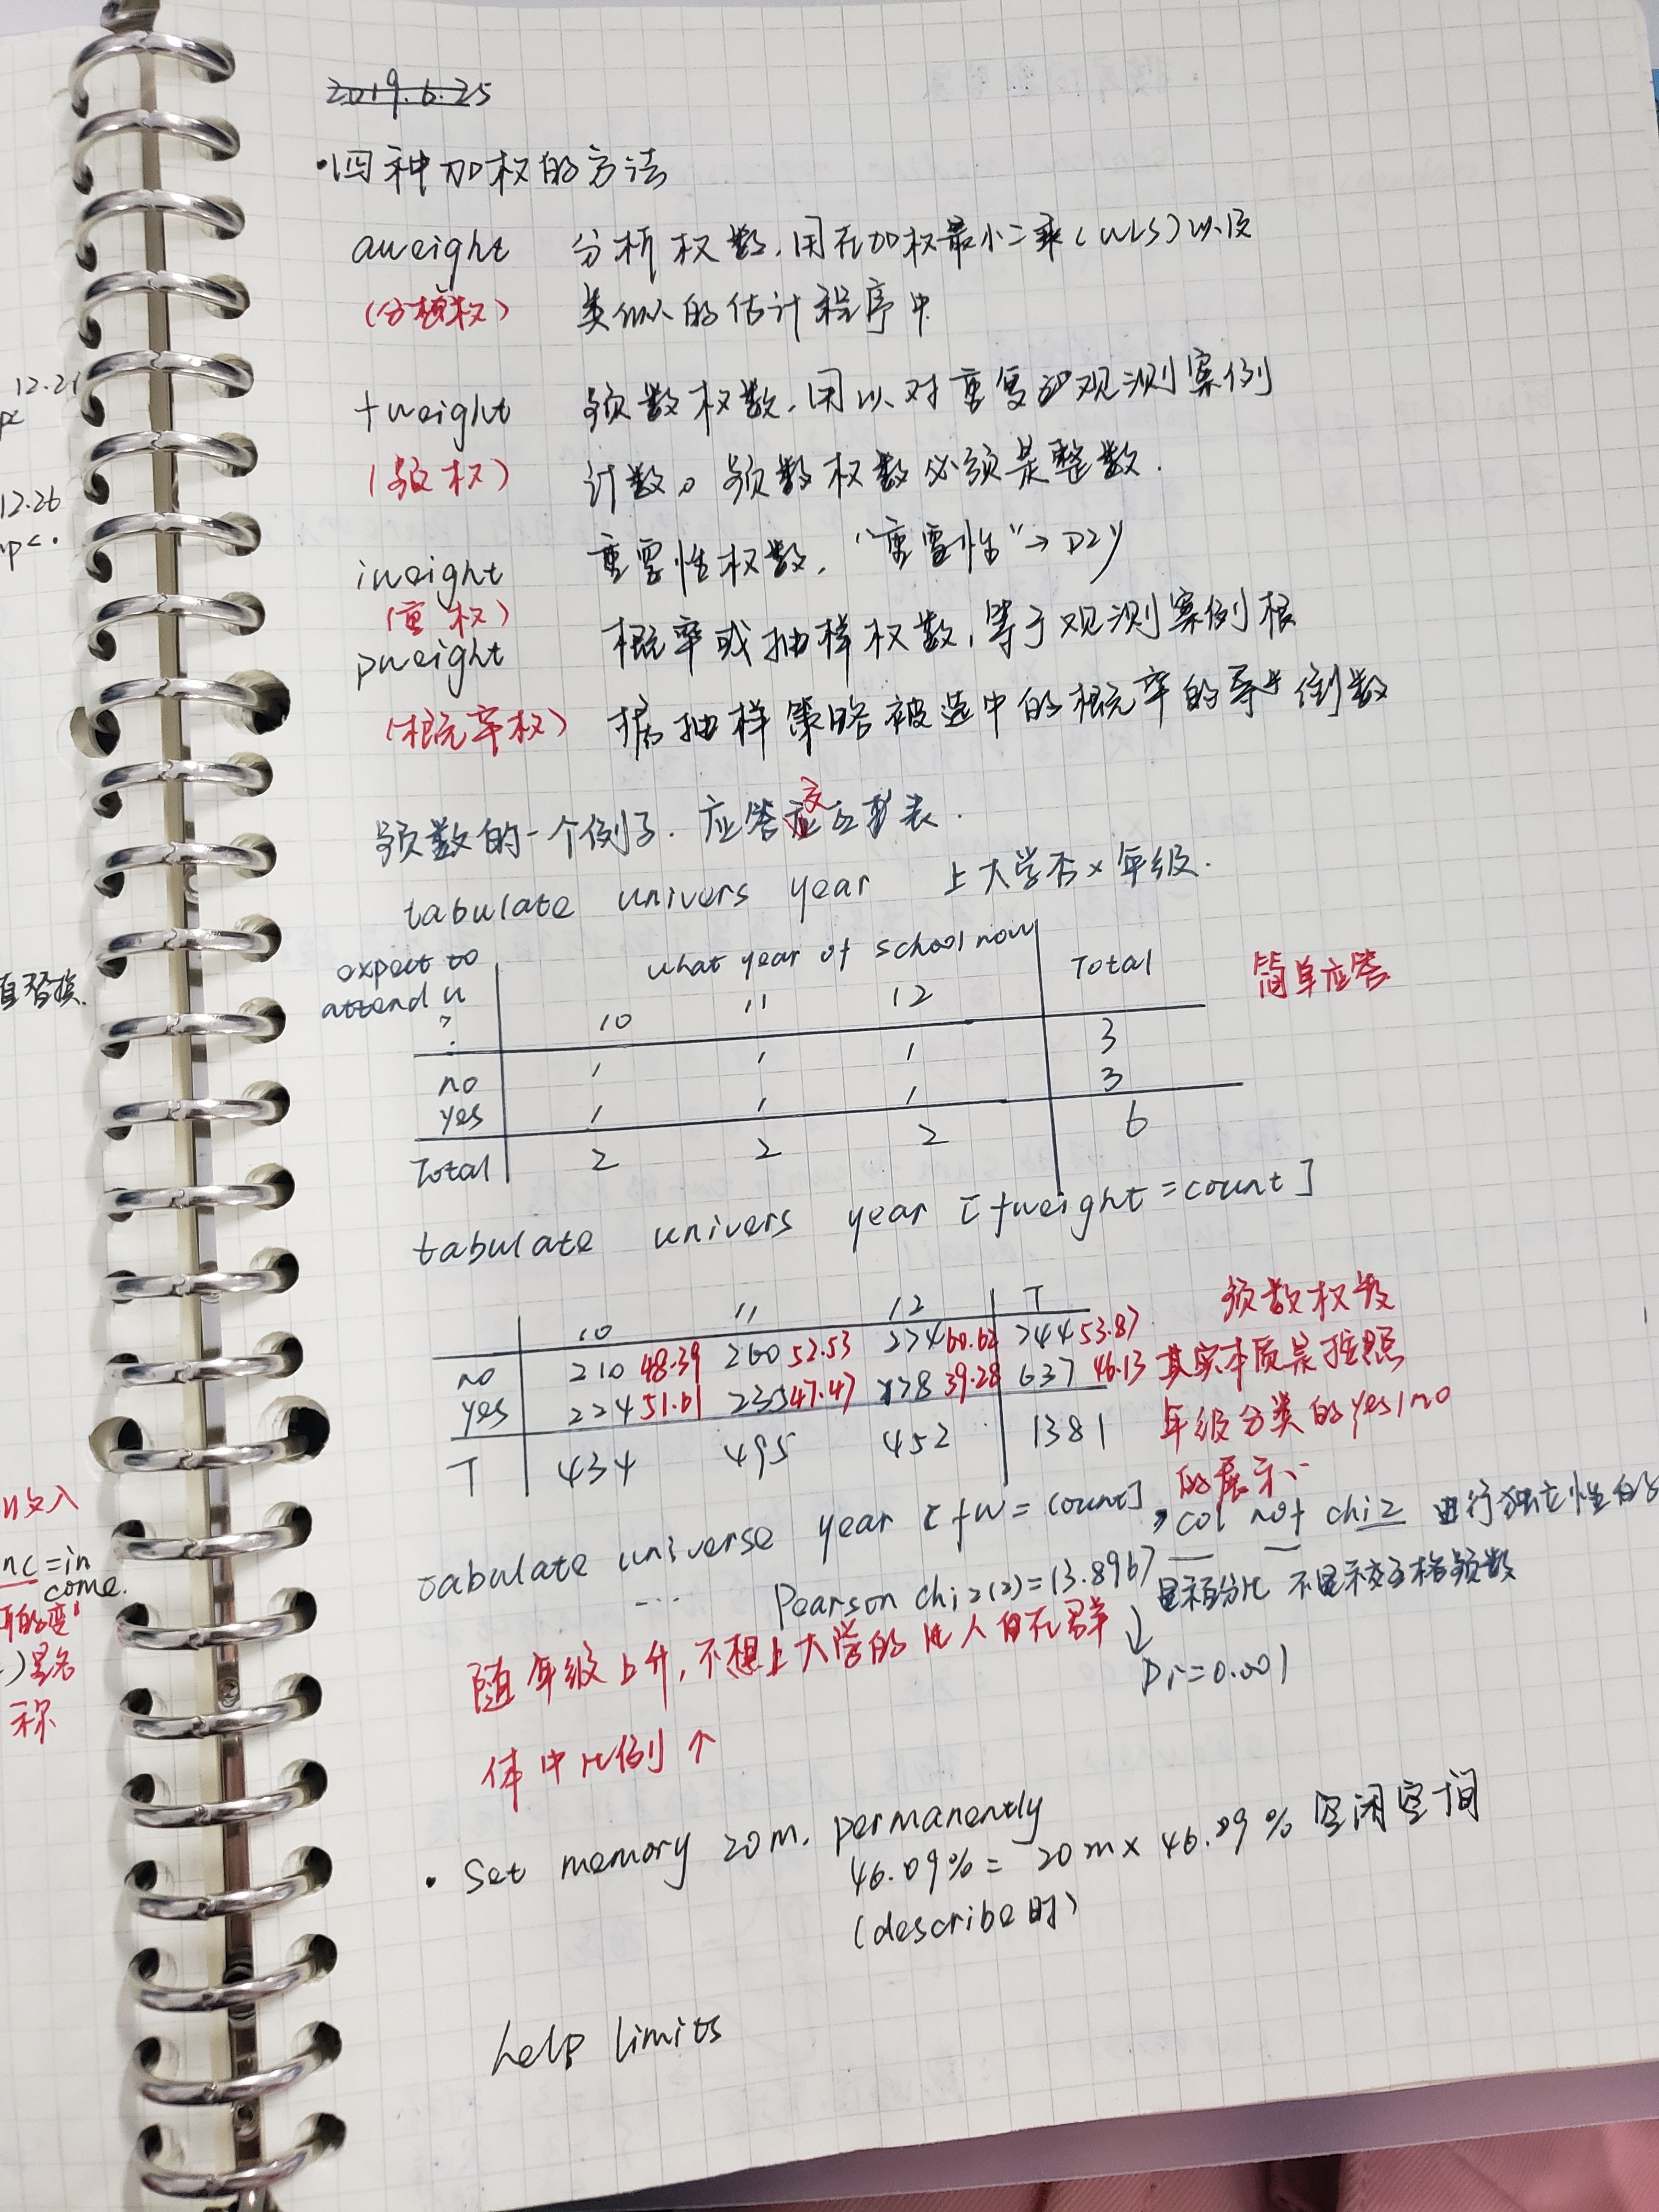 2019.6.25
·四种加权的方法
aweight 分析权数,用在加权最小二乘(WLS)以及
(分析权) 类似的估计程序中
fweight 频数权数,用以对重复的观测案例
(频权) 计数。频数权数必须是整数.
iweight 重要性权数,"重要性"→DIY
(重权)
pweight 概率或抽样权数,等于观测案例根
(概率权) 据抽样策略被选中的概率的导倒数
频数的一个例子. 应答交互表.
tabulate univers year 上大学否×年级.
expect to what year of school now Total 简单应答
attend u
? 10 11 12
no 1 1 1 3
yes 1 1 1 3
Total 2 2 2 6
tabulate univers year [fweight=count]
10 11 12 T 频数权数
no 210 48.39 260 52.53 274 60.62 744 53.87 其实本质是按照
yes 224 51.61 235 47.47 178 39.28 637 46.13 年级分类的yes/no
T 434 495 452 1381 的展示
tabulate universe year [fw=count], col nof chi2 进行独立性的
... Pearson chi2(2)=13.8967 显示百分比 不显示交互格频数
↓
Pr=0.001
随年级上升,不想上大学的人在群
体中比例↑
· Set memory 20m, permanently
46.09%= 20m×46.09%空闲空间
(describe时)
help limits
12.21
12.26
值替换.
收入
nc=in
come.
的变
)是名
称